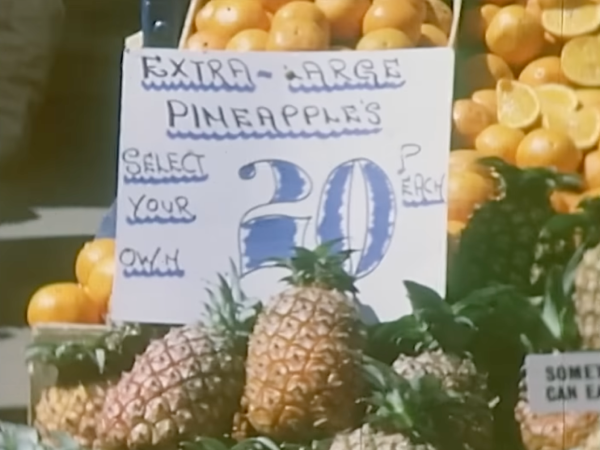 EXTRA-LARGE
PINEAPPLE'S
SELECT
YOUR
OWN
20
P
EACH
SOMET
CAN EA